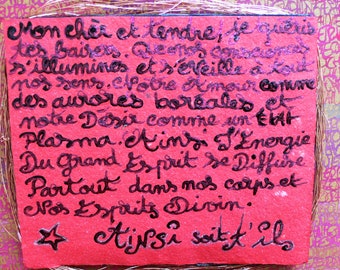 Mon chèr et tendre, je quéris
tes baisers. Que nos consciences
s'illumines et s'éveille à tout
nos sens. Notre Amour comme
des aurores boréales et
notre Désir comme un État
Plasma. Ainsi L'Energie
Du Grand Esprit se Diffuse
Partout dans nos corps et
Nos Esprits Divin.
AiNSi soit t'ils